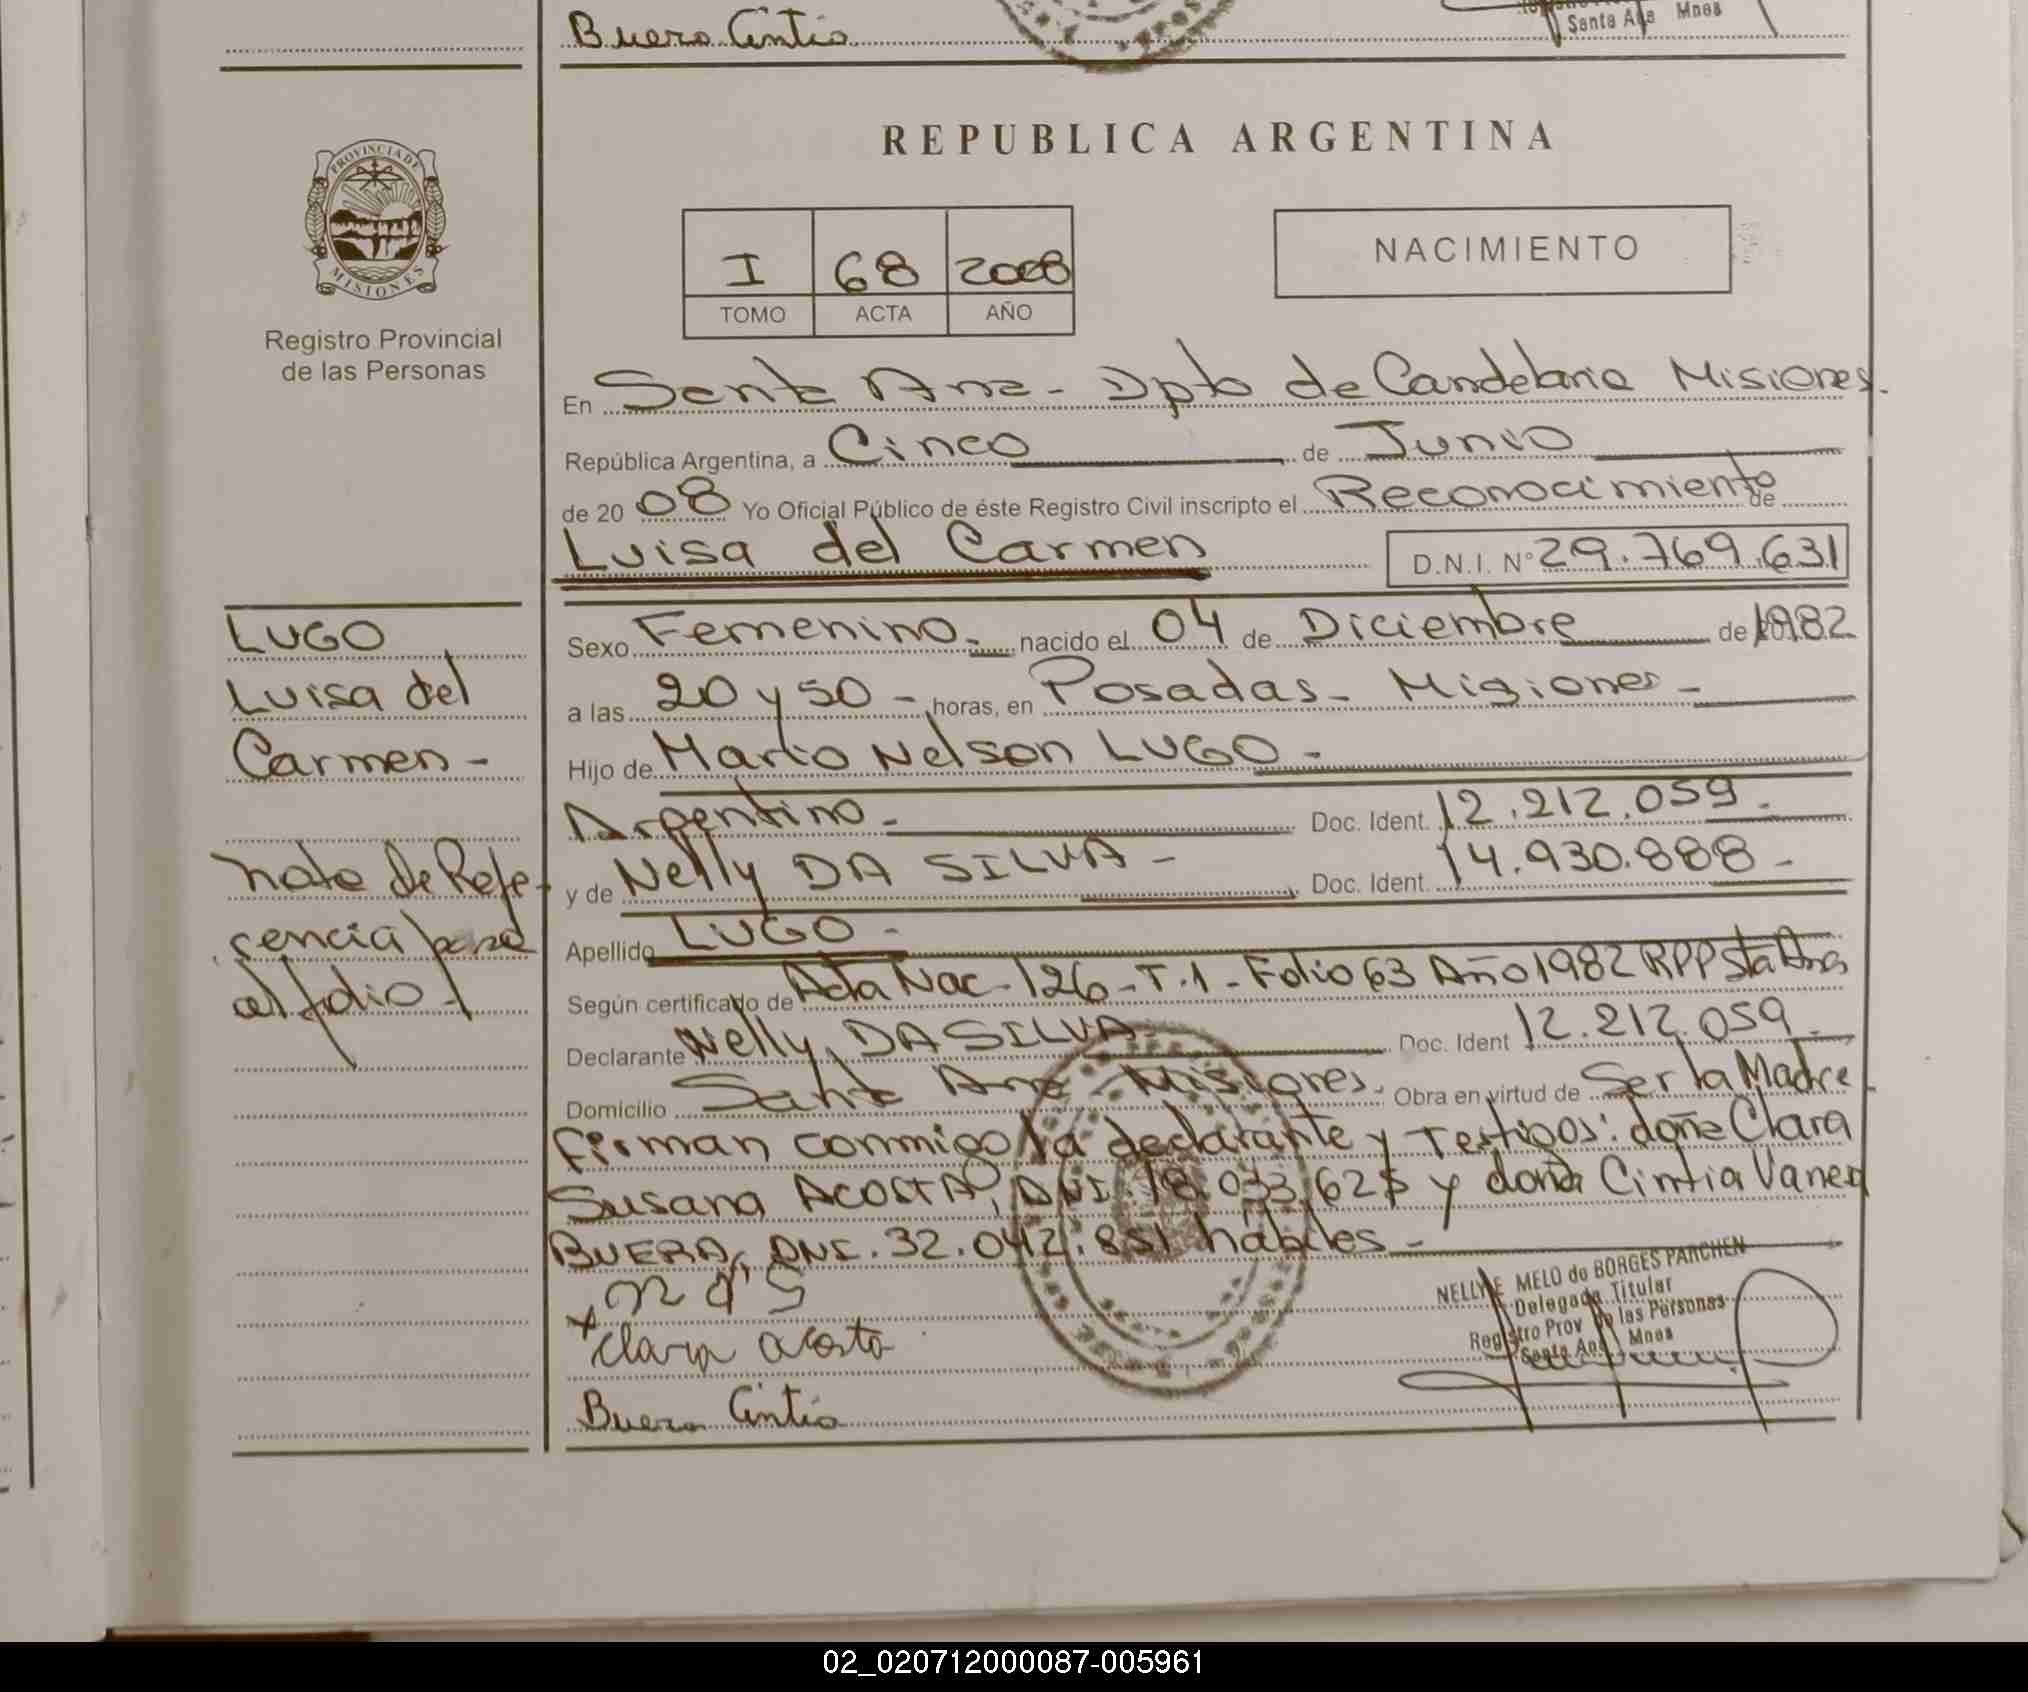 Buera Cintia
Santa Ana Mnes
REPUBLICA ARGENTINA
PROVINCIA DE
MISIONES
Registro Provincial
de las Personas
I 68 2008
TOMO ACTA AÑO
NACIMIENTO
En Santa Ana - Dpto de Candelaria Misiones.
República Argentina, a Cinco de Junio
de 20 08 Yo Oficial Público de éste Registro Civil inscripto el Reconocimiento de
Luisa del Carmen D.N.I. Nº 29.769.631
LUGO
Luisa del
Carmen -
Nota de Refe-
rencia pase
al folio -
Sexo Femenino. nacido el 04 de Diciembre de 1982
a las 20 y 50 - horas, en Posadas - Misiones -
Hijo de Mario Nelson LUGO -
Argentino - Doc. Ident. 12.212.059.
y de Nelly DA SILVA - Doc. Ident. 14.930.888 -
Apellido LUGO -
Según certificado de Acta Nac - 126 - T.1 - Folio 63 Año 1982 RPP Sta Ana
Declarante Nelly DA SILVA - Doc. Ident 12.212.059 -
Domicilio Santa Ana - Misiones. Obra en virtud de Ser la Madre.
Firman conmigo la declarante y Testigos: doña Clara
Susana ACOSTA, DNI. 18.033.625 y doña Cintia Vanesa
BUERA, DNI. 32.042.851 hábiles -
Clara acosta
Buera Cintia
NELLY E MELO de BORGES PARCHEN
Delegada Titular
Registro Prov de las Personas
Santa Ana Mnes
02_020712000087-005961